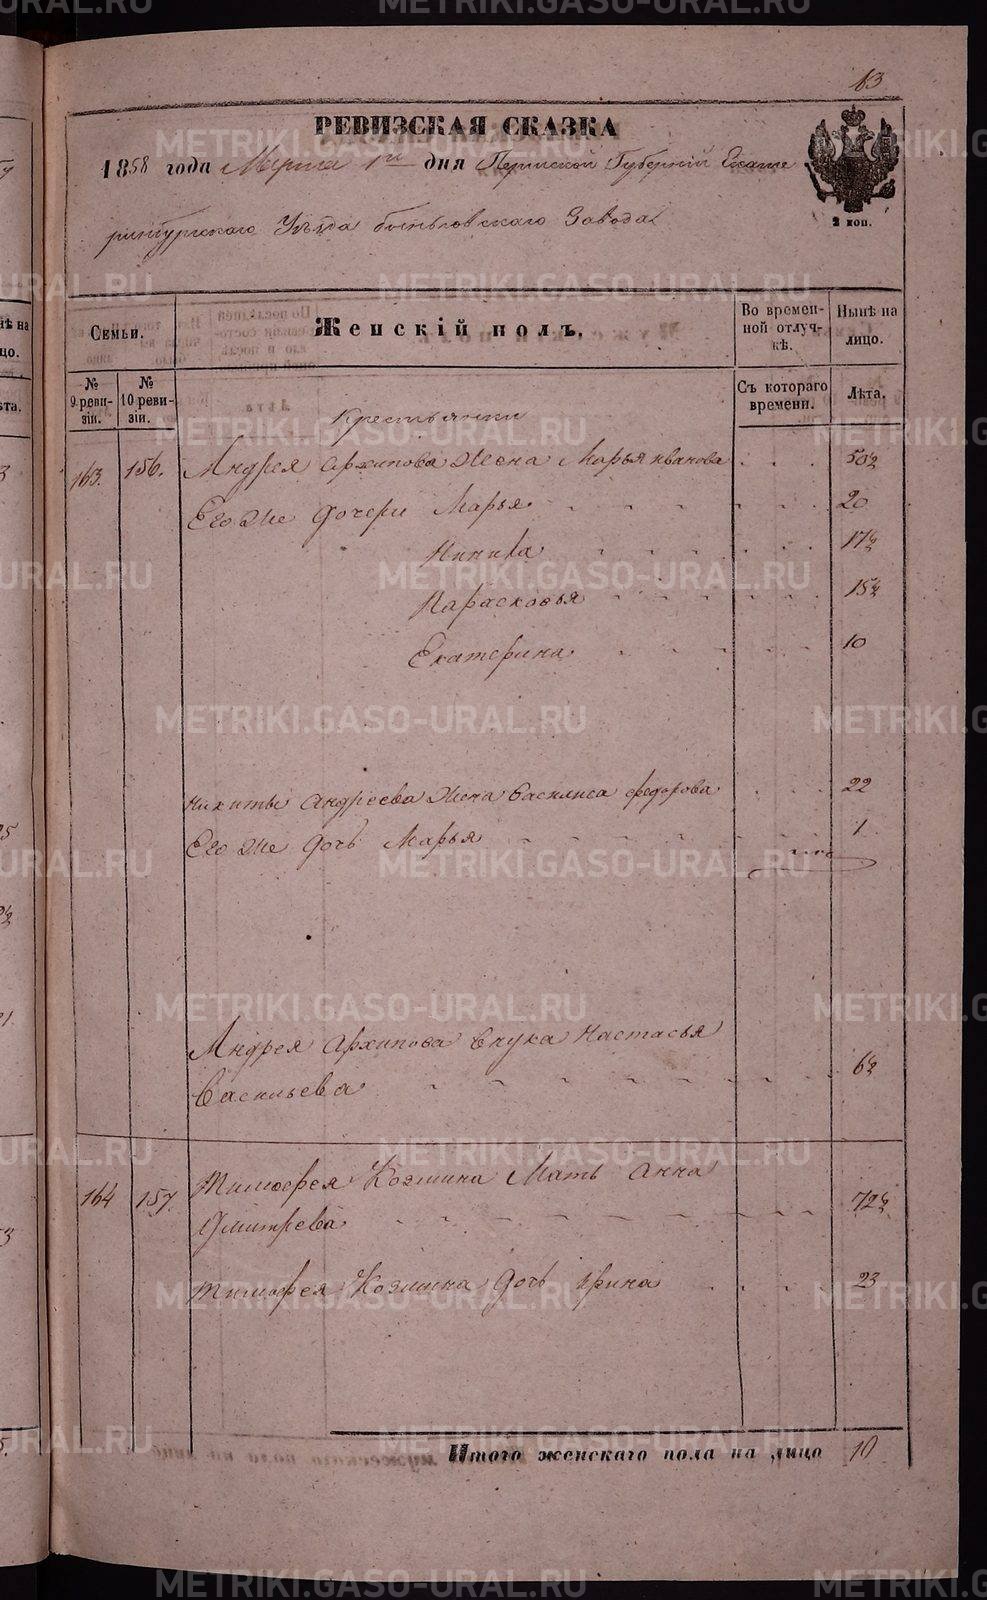 13
РЕВИЗСКАЯ СКАЗКА
1858 года Марта 1го дня Пермской Губерніи Екате
ринбургскаго Уѣзда Быньговскаго Завода
2 коп.
Семьи.
Женскій полъ.
Во времен-
ной отлуч-
кѣ.
Нынѣ на
лицо.
№
9 реви-
зіи.
№
10 реви-
зіи.
Съ котораго
времени.
Лѣта.
Крестьянки
163. 156. Андрея Архипова Жена Марья Иванова 50½
Его же Дочери Марья 20
17½
Парасковья 15½
Екатерина 10
Никиты Андреева Жена Василиса Федорова 22
Его же Дочь Марья 1
Андрея Архипова Внука Настасья
Васильева 6½
164 157. Тимофея Козмина Мать Анна
Дмитрева 72½
Тимофея Козмина Дочь Ирина 23
Итого женскаго пола на лицо 10
METRIKI.GASO-URAL.RU